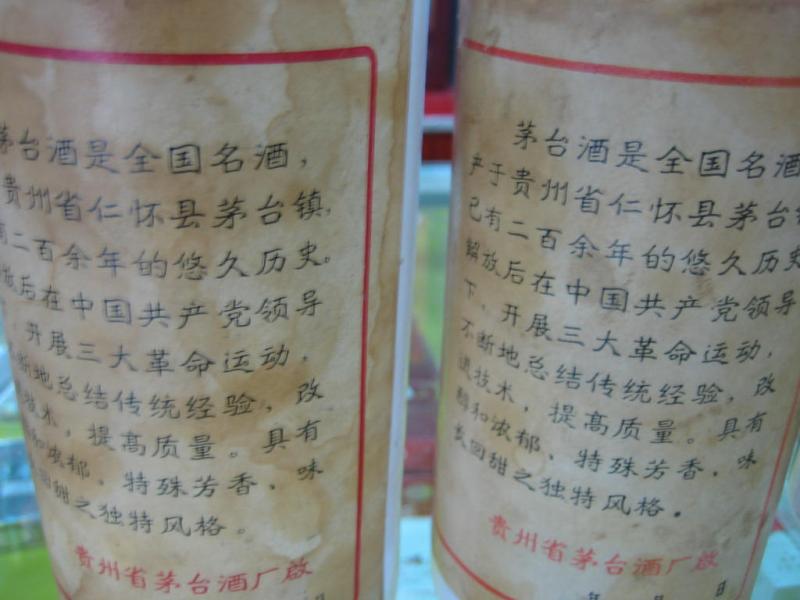 茅台酒是全国名酒，
贵州省仁怀县茅台镇，
有二百余年的悠久历史。
放后在中国共产党领导
，开展三大革命运动，
不断地总结传统经验，改
技术，提高质量。具有
和浓郁，特殊芳香，味
长回甜之独特风格。
贵州省茅台酒厂啟
日
茅台酒是全国名酒
产于贵州省仁怀县茅台镇
已有二百余年的悠久历史
解放后在中国共产党领导
下，开展三大革命运动，
不断地总结传统经验，改
进技术，提高质量。具有
醇和浓郁，特殊芳香，味
长回甜之独特风格。
贵州省茅台酒厂啟
年 月 日